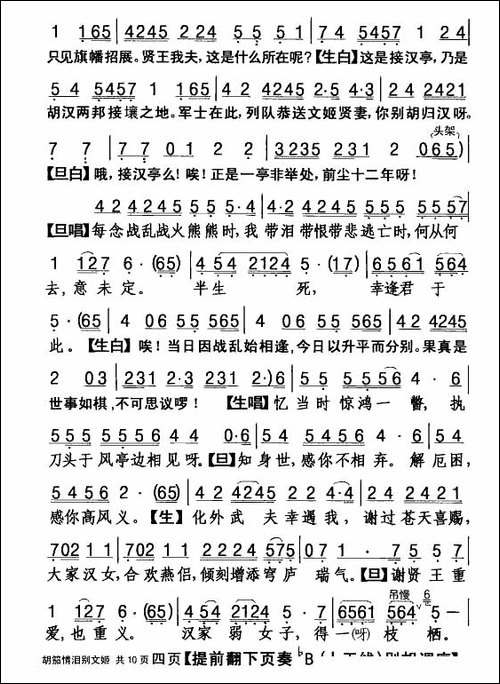 1 165 | 4245 224 | 224 5 5 5 | 5 4245 24
只见旗幡招展。贤王我夫，这是什么所在呢？【生白】这是接汉亭，乃是
5 4 54457 1 165 | 42 42445 2·5 4·3 | 24 2421
胡汉两邦接壤之地。军士在此，列队恭送文姬贤妻，你别胡归汉呀。
(头架)
7 7 | 7 7 7101 2 2 | 3235 231 2 065)
【旦白】哦，接汉亭么！唉！正是一亭非举处，前尘十二年呀！
4 2 4245 5 5·4 | 4·2 4245 5 5 5 5 5 5557
【旦唱】每念战乱战火熊熊时，我 带泪带恨带悲逃亡时，何从何
1 127 6·(65) | 4 54 2124 5·(17) | 6561 564
去，意未定。 半生 死， 幸逢君于
5·(65 | 4 06 55 565 | 4 06 55 565 | 42 4245
此。【生白】唉！当日因战乱始相逢，今日以升平而分别。果真是
2 03 | 231 2·3 231 2·)6 | 5 5 5 5 5 56 4·6
世事如棋，不可思议啰！ 【生唱】忆当时惊鸿一瞥，执
555 5 5556 44 0·6 | 54 5556 54 4·6 | 54
刀头于风亭边相见呀。【旦】知身世，感你不相弃。解厄困，
5456 2·(65) | 42 4245 22 4·4 | 24 2421
感你高风义。【生】化外武 夫幸遇我，谢过苍天喜赐，
702 11 | 702 11 224 575 | 07·7 65 57
大家汉女，合欢燕侣，倾刻增添穹庐 瑞气。【旦】谢贤王重
吊慢
1 127 6·(65) | 4 54 2124 5·7 | 6561 564 5·
爱，也重义。 汉家 弱女子，得一(呀)枝栖。
胡笳情泪别文姬 共10页 四页【提前翻下页奏